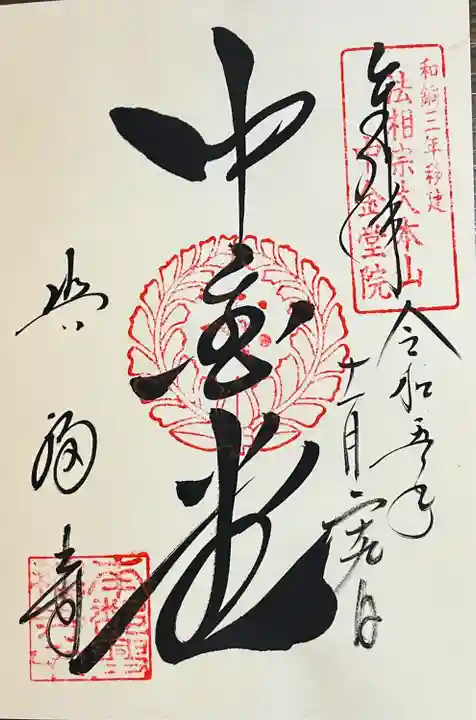 和銅三年移建
法相宗大本山
中金堂院
奉拝
令和五年
十一月二究日
中金堂
興福寺